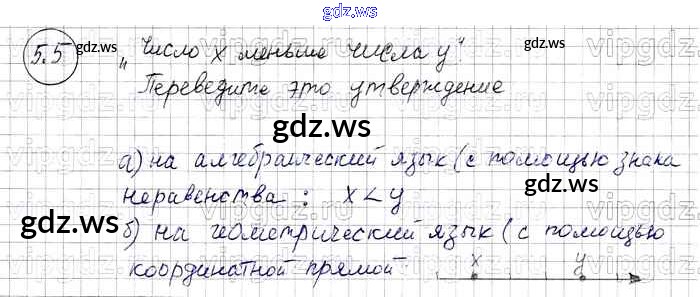 gdz.ws
5.5 gdz.ws „Число x меньше числа y" gdz.ws
Переведите это утверждение
gdz.ws
а) на алгебраический язык (с помощью знака
неравенства : x < y gdz.ws
gdz.ws
б) на геометрический язык (с помощью
координатной прямой x y
gdz.ws
vipgdz